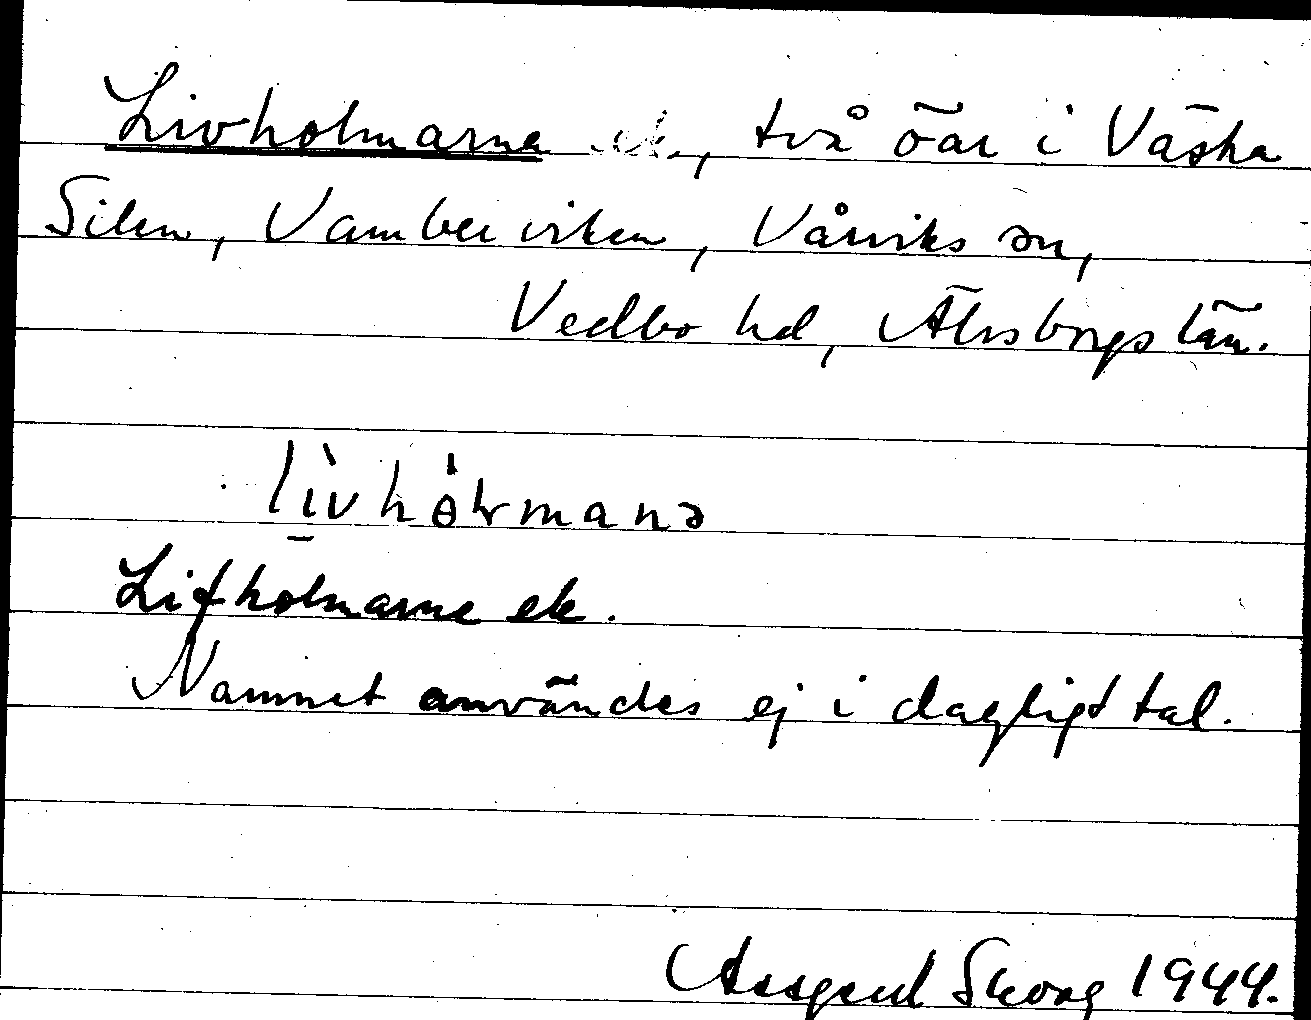 Livholmarna ek., två öar i Västra
Silen, Vamberviken, Vårviks sn,
Vedbo hd, Älvsborgs län.
Lifholmarne ek.
Namnet användes ej i dagligt tal.
Skoog 1944.